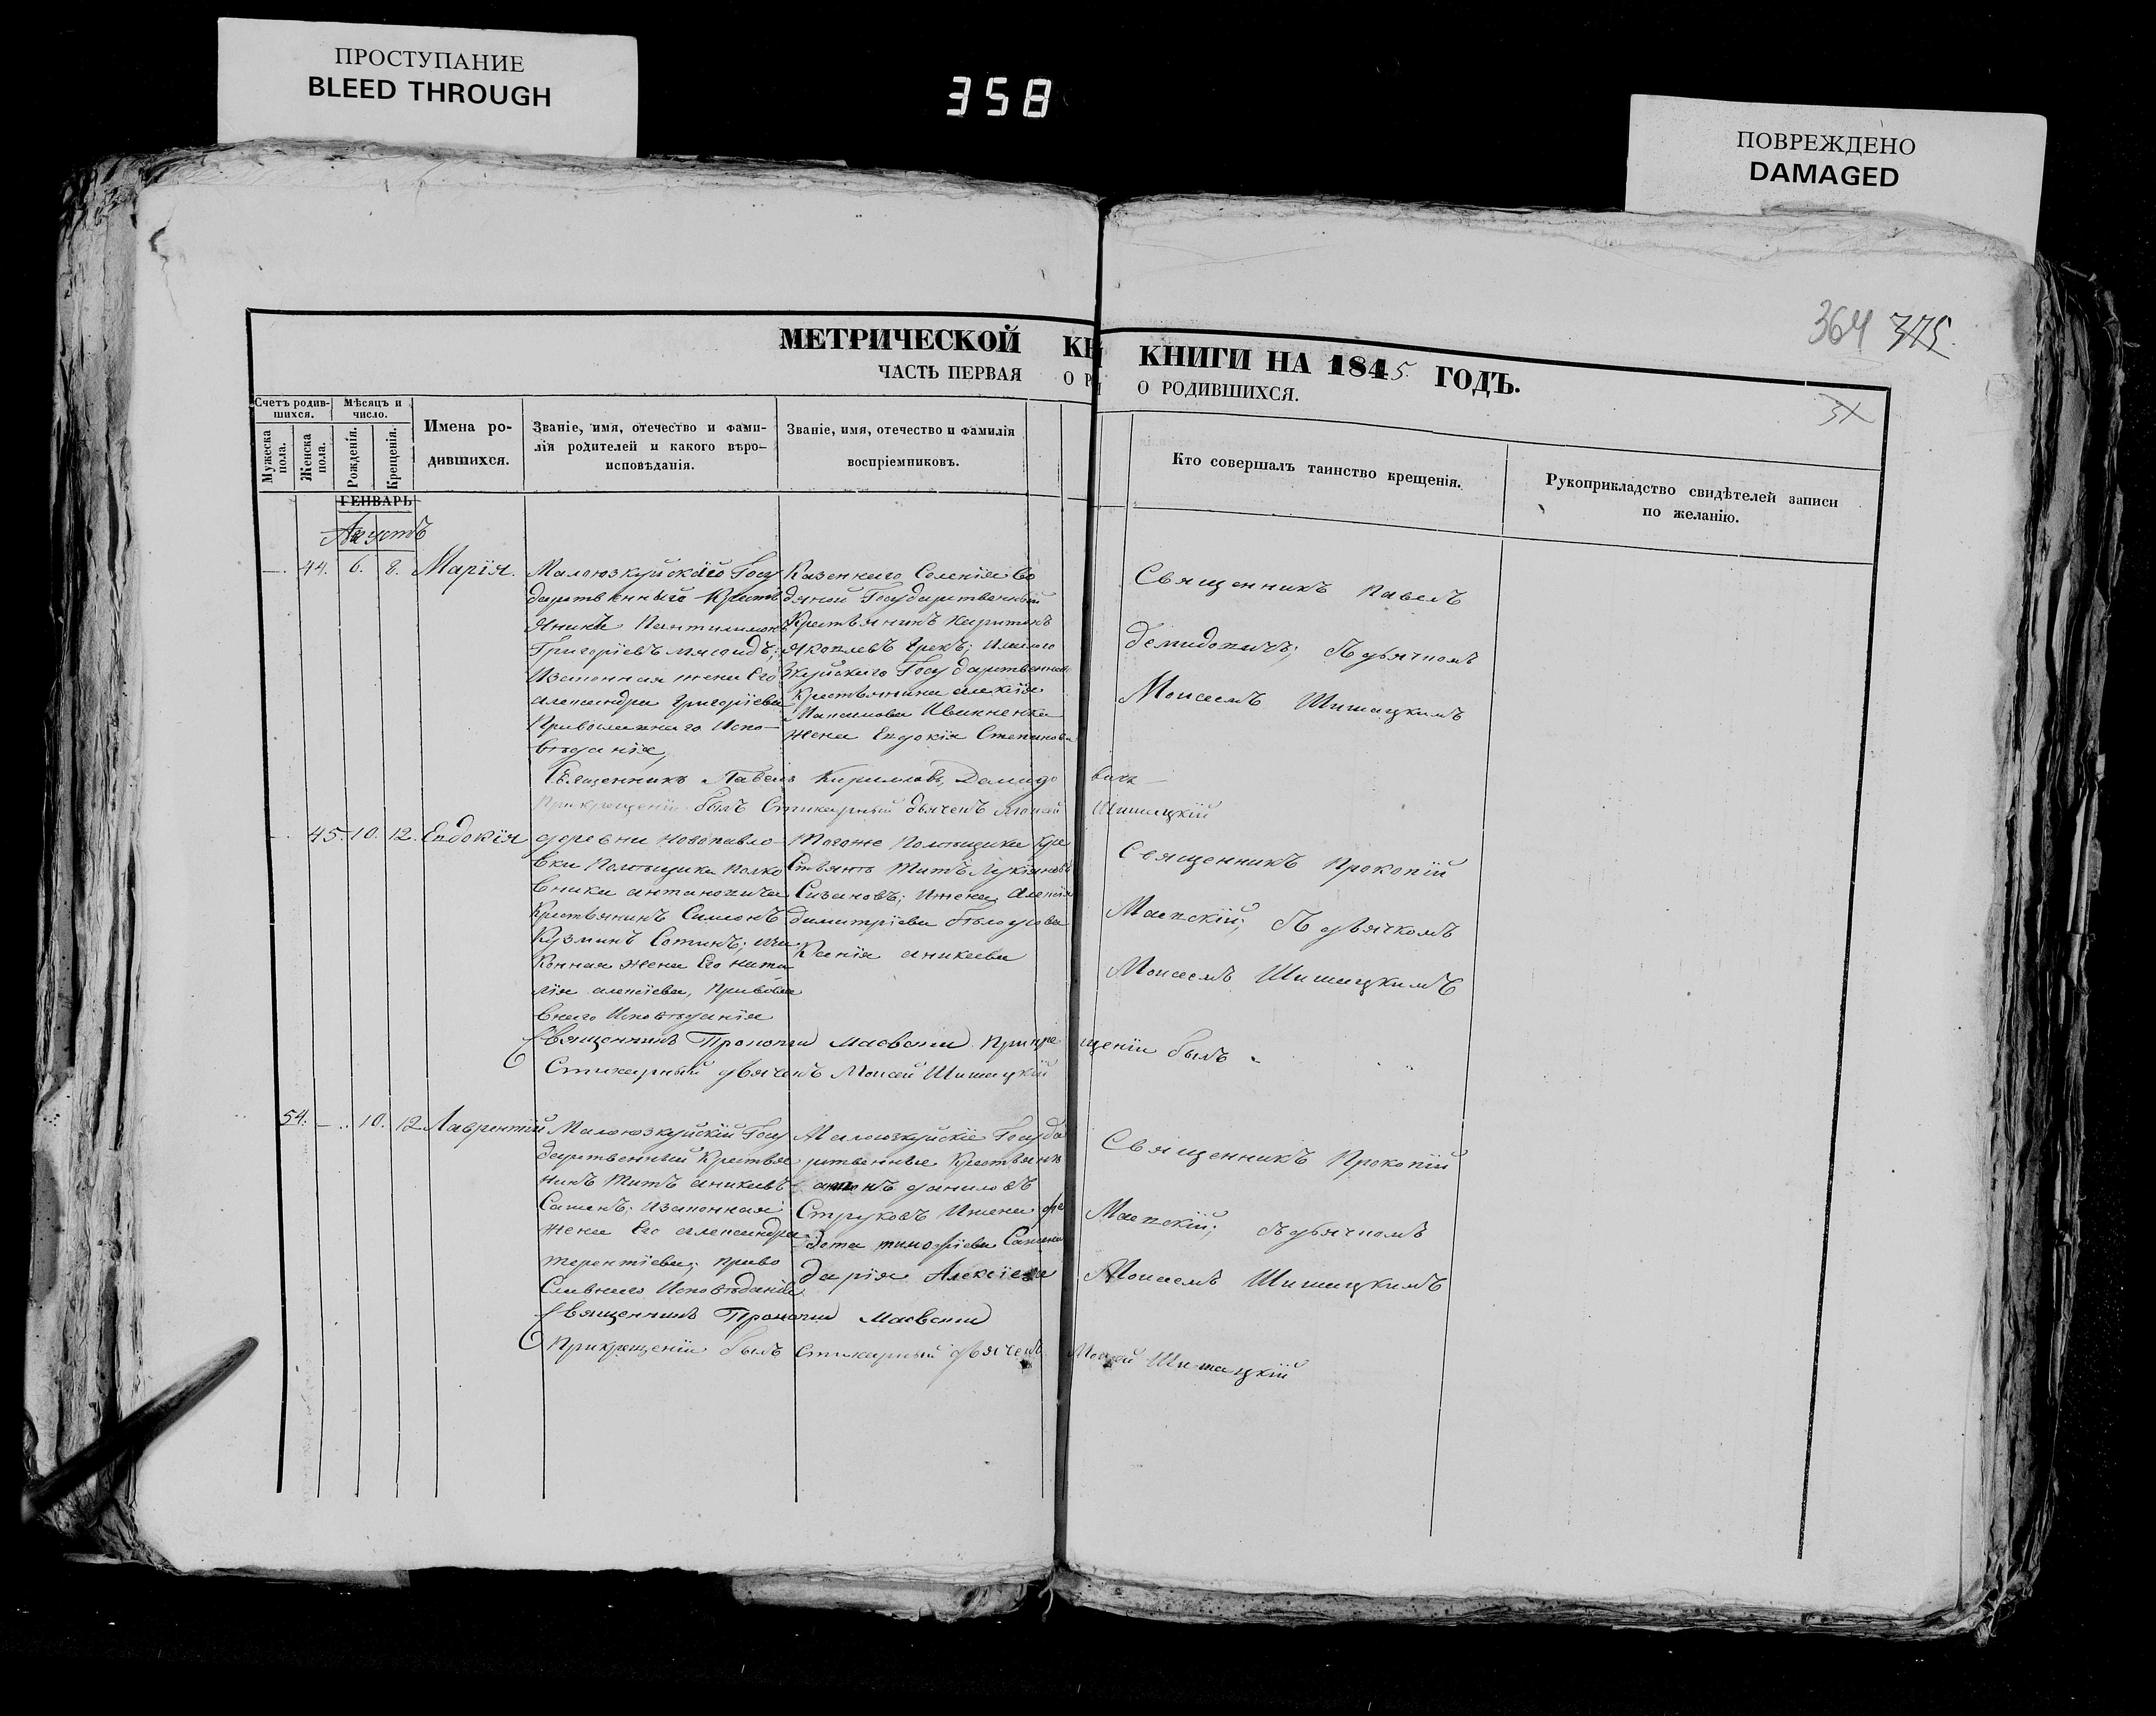 ПРОСТУПАНИЕ
BLEED THROUGH
358
ПОВРЕЖДЕНО
DAMAGED
364 375.
МЕТРИЧЕСКОЙ КН
ЧАСТЬ ПЕРВАЯ О Р
КНИГИ НА 1845 ГОДЪ.
О РОДИВШИХСЯ.
Счетъ родив-
шихся.
Мѣсяцъ и
число.
Мужеска
пола.
Женска
пола.
Рожденія.
Крещенія.
Имена ро-
дившихся.
Званіе, имя, отечество и фами-
лія родителей и какого вѣро-
исповѣданія.
Званіе, имя, отечество и фамилія
воспріемниковъ.
Кто совершалъ таинство крещенія.
Рукоприкладство свидѣтелей записи
по желанію.
ГЕНВАРЬ
Августъ
—. 44. 6. 8. Марія.
Малоюзкуйскаго Госу
дарственнаго Крест
янина Пантилимонъ
Григоріевъ
Изаконная жена Его
александра Григоріева
Православнаго Испо-
вѣданія
Казеннаго Селенія Во
дяной Государственный
Крестьянинъ Харитонъ
Яковлевъ Грекъ;Ималою
зкуйскаго Государственнаго
Крестьянина алексія
Максимова Ивахненка
жена Евдокія Степанова
Священникъ Павелъ
Демидовичъ; Съ дьячкомъ
Моисеемъ Шишацкимъ
Священникъ Павелъ Кириловъ Демидо вичъ
При крещеніи былъ Стихарный дьячекъ Моисей Шишацкій
— 45. 10. 12. Евдокія
деревни Новопавло-
вки Помѣщика Полко
вника антоновича
Крестьянинъ Симонъ
Кузминъ Сотинъ; иза
конная жена Его ната
лія алексіева, Правосла
внаго Исповѣданія
Тогоже Помѣщика Кре
стьянъ Титъ Лукіяновъ
Сизановъ; Ижена алексія
димитріева бѣлоусова
Ксенія аникіева
Священникъ Прокопій
Маевскій; Съ дьячкомъ
Моисеемъ Шишацкимъ
Священникъ Прокопій Маевскій При кре щеніи былъ
Стихарный дьячекъ Моисей Шишацкій
54. —. 10. 12 Лаврентій
Малоюзкуйскій Госу
дарственный Крестья
нинъ Титъ аникіевъ
Сашенъ; Изаконная
жена Его александра
терентіева; право
Славнаго Исповѣданія
Малоюзкуйскіе Госуда
рственные Крестьяне
антонъ даниловъ
Струковъ Ижена фе
дота тимофіева
дарія Алексіева
Священникъ Прокопій
Маевскій; Съ дьячкомъ
Моисеемъ Шишацкимъ
Священникъ Прокопій Маевскій
При крещеніи былъ Стихарный дьячекъ Моисей Шишацкій